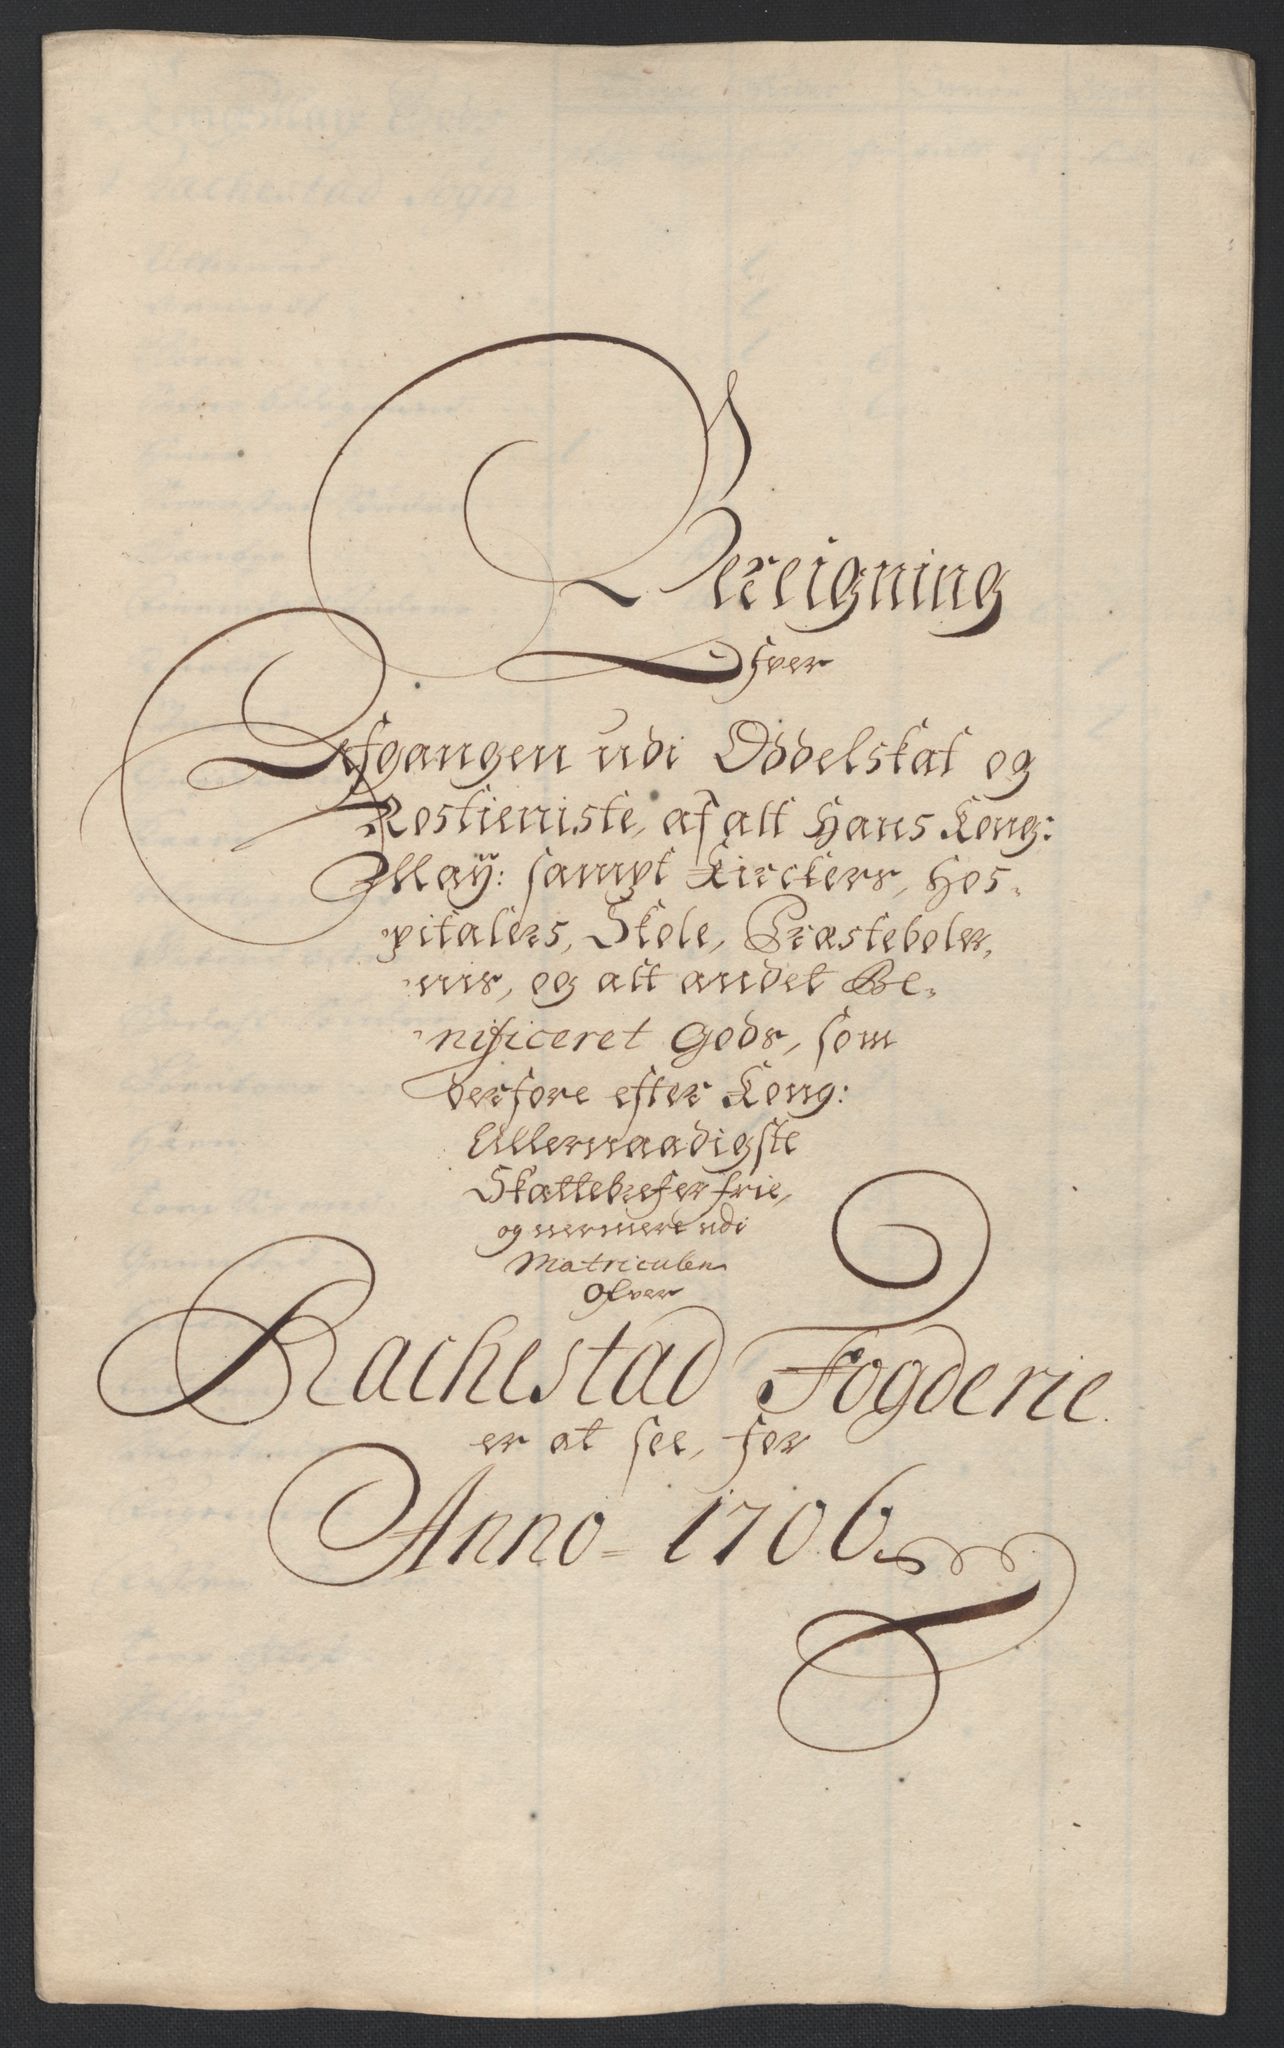 Bereigning
Ofver
Afgangen udi Oddelskat og
Rostieniste, af alt Hans Kong:
May: sampt Kirckers, Hos-
pitalers, Skole, Præsteboler,
nis, og alt andet Be-
nificeret Gods, som
derfore efter Kong:
Allernaadigste
Skattebrefer frie,
og nermere udi
Matriculen
Ofver
Rachestad Fogderie
er at see, for
Anno 1706